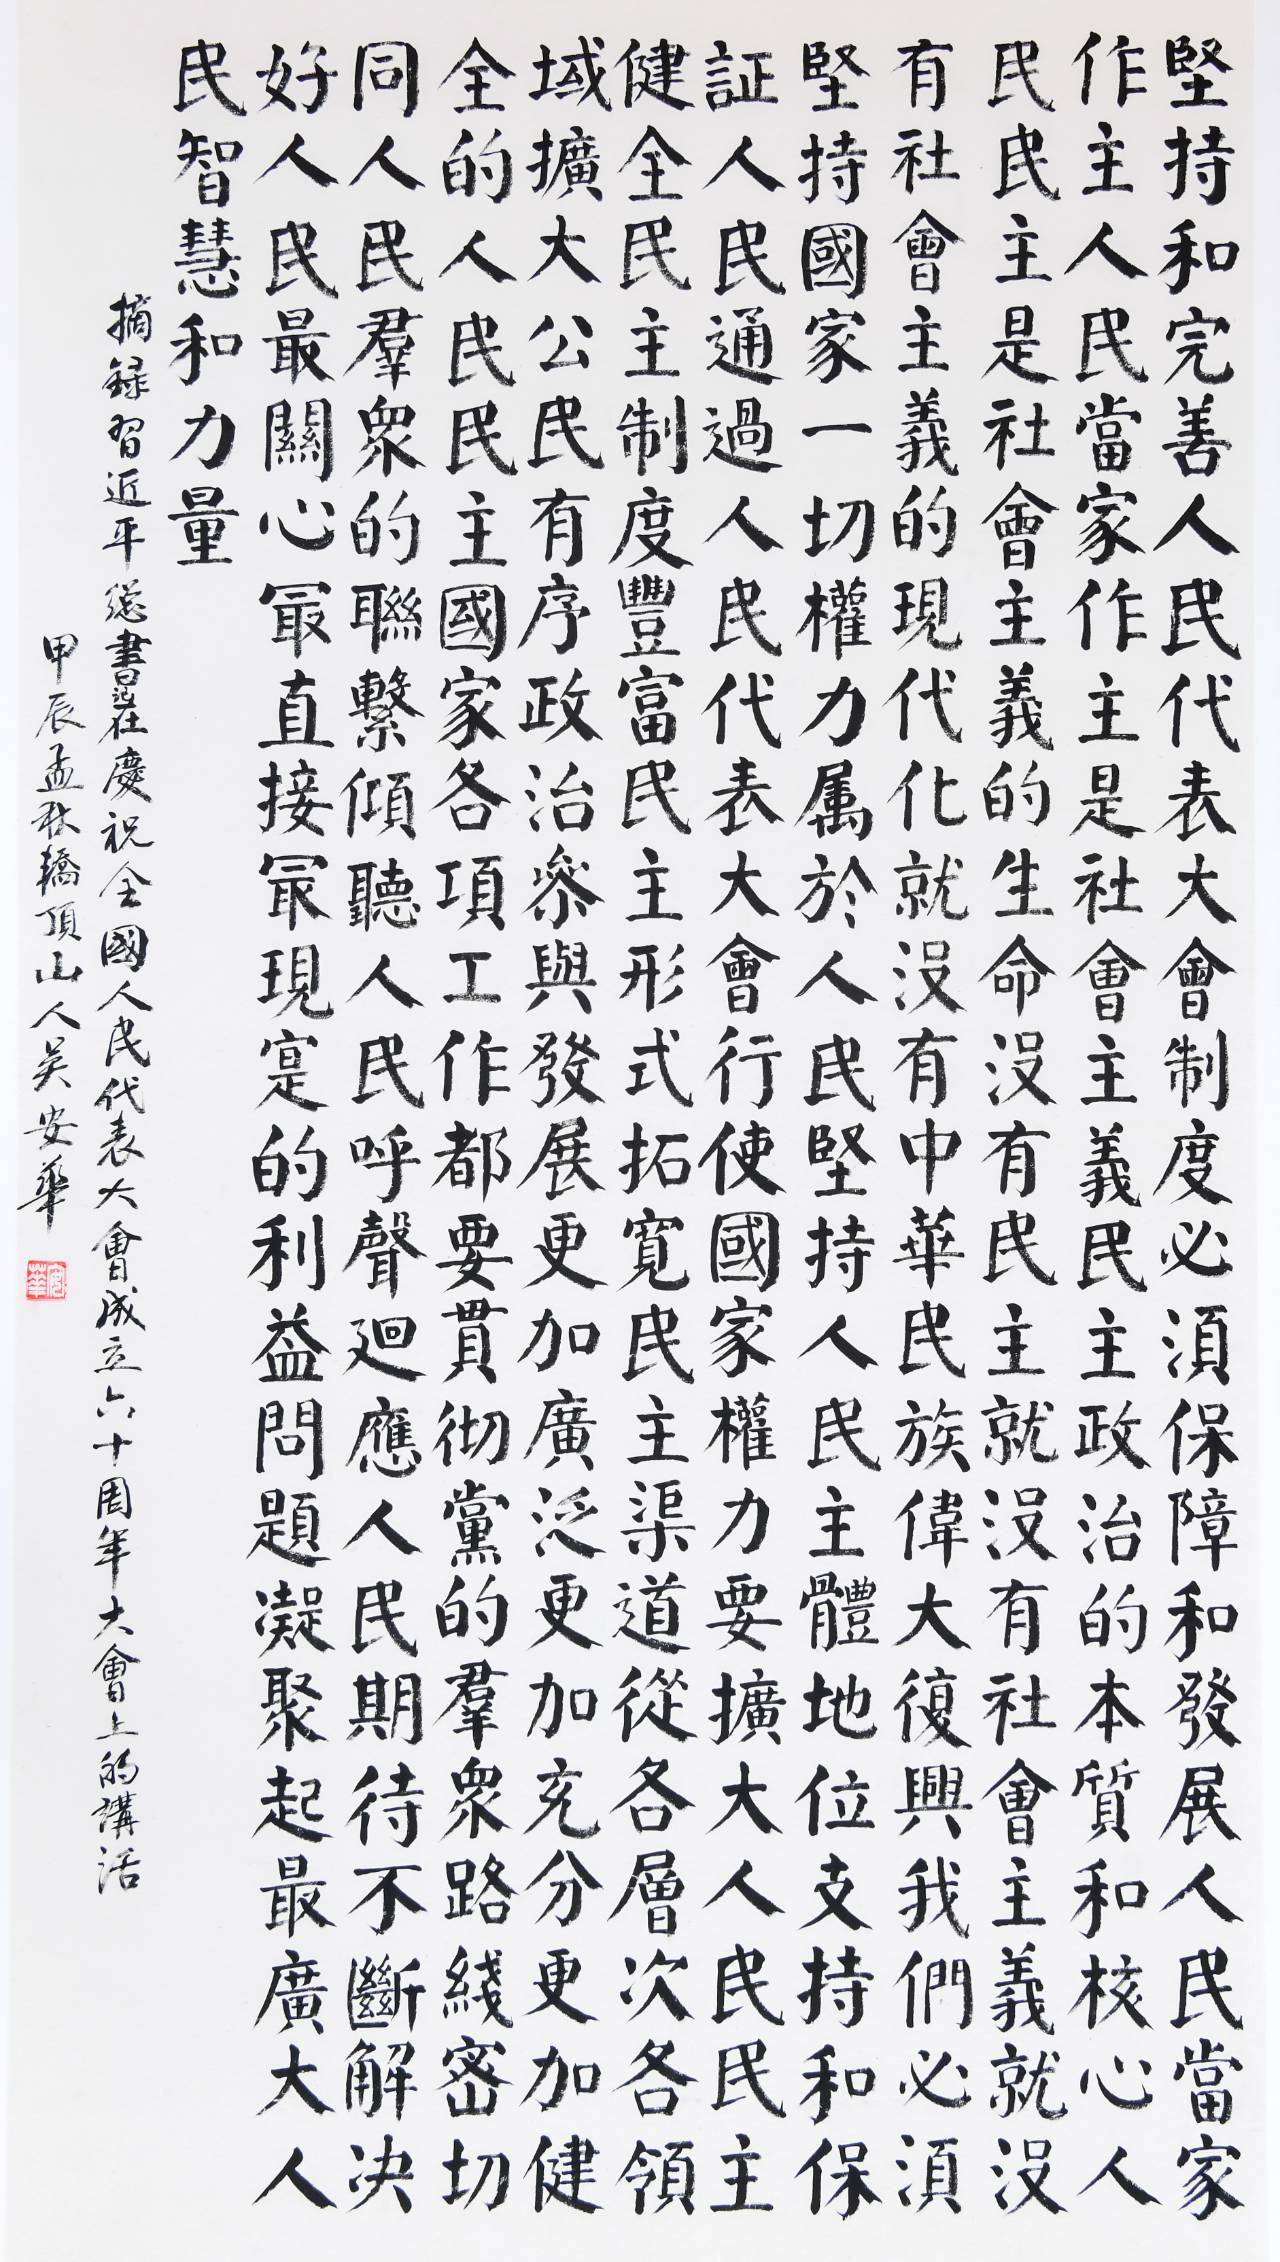 堅持和完善人民代表大會制度必須保障和發展人民當家
作主人民當家作主是社會主義民主政治的本質和核心人
民民主是社會主義的生命沒有民主就沒有社會主義就沒
有社會主義的現代化就沒有中華民族偉大復興我們必須
堅持國家一切權力属於人民堅持人民主體地位支持和保
証人民通過人民代表大會行使國家權力要擴大人民民主
健全民主制度豐富民主形式拓寬民主渠道從各層次各領
域擴大公民有序政治參與發展更加廣泛更加充分更加健
全的人民民主國家各項工作都要貫彻黨的羣眾路綫密切
同人民羣眾的聯繫傾聽人民呼聲廻應人民期待不斷解决
好人民最關心最直接最現寔的利益問題凝聚起最廣大人
民智慧和力量
摘錄習近平總書記在慶祝全國人民代表大會成立六十周年大會上的講話
甲辰孟秋轎頂山人吴安華
安華